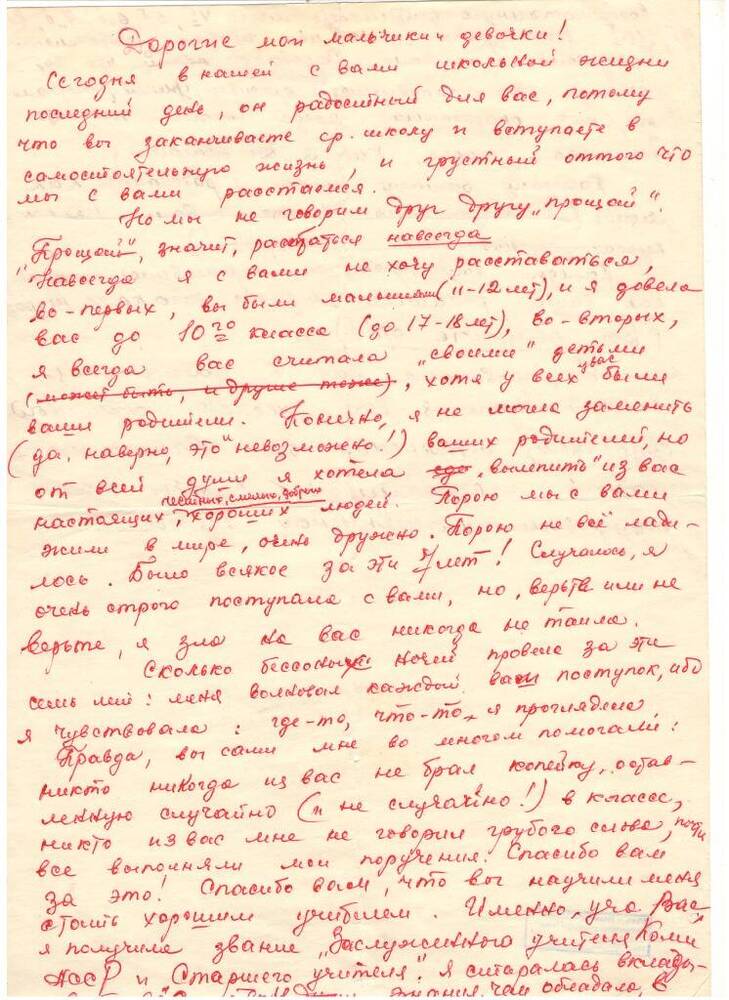 Дорогие мои мальчики и девочки!
Сегодня в нашей с вами школьной жизни
последний день, он радостный для вас, потому
что вы заканчиваете ср. школу и вступаете в
самостоятельную жизнь, и грустный оттого что
мы с вами расстаемся.
Но мы не говорим друг другу „прощай".
„Прощай", значит, расстаться навсегда
Навсегда я с вами не хочу расставаться,
во-первых, вы были малышами (11-12 лет), и я довела
вас до 10го класса (до 17-18 лет), во-вторых,
я всегда вас считала „своими" детьми
(может быть, и другие тоже), хотя у всех у вас были
ваши родители. Конечно, я не могла заменить
(да, наверно, это невозможно!) ваших родителей, но
от всей души я хотела „вылепить" из вас
настоящих, честных, смелых, добрых хороших людей. Порою мы с вами
жили в мире, очень дружно. Порою не всё лади-
лось. Было всякое за эти 7 лет! Случалось, я
очень строго поступала с вами, но, верьте или не
верьте, я зла на вас никогда не таила.
Сколько бессонных ночей провела за эти
семь лет: меня волновал каждый ваш поступок, ибо
я чувствовала: где-то, что-то я проглядела
Правда, вы сами мне во многом помогали:
никто никогда из вас не брал копейку, остав-
ленную случайно (и не случайно!) в классе,
никто из вас мне не говорил грубого слова, почти
все выполняли мои поручения. Спасибо вам
за это! Спасибо вам, что вы научили меня
стать хорошим учителем. Именно, уча Вас,
я получила звание „Заслуженного учителя Коми
АССР и Старшего учителя". Я старалась вклады-
знания, чем обладала, в